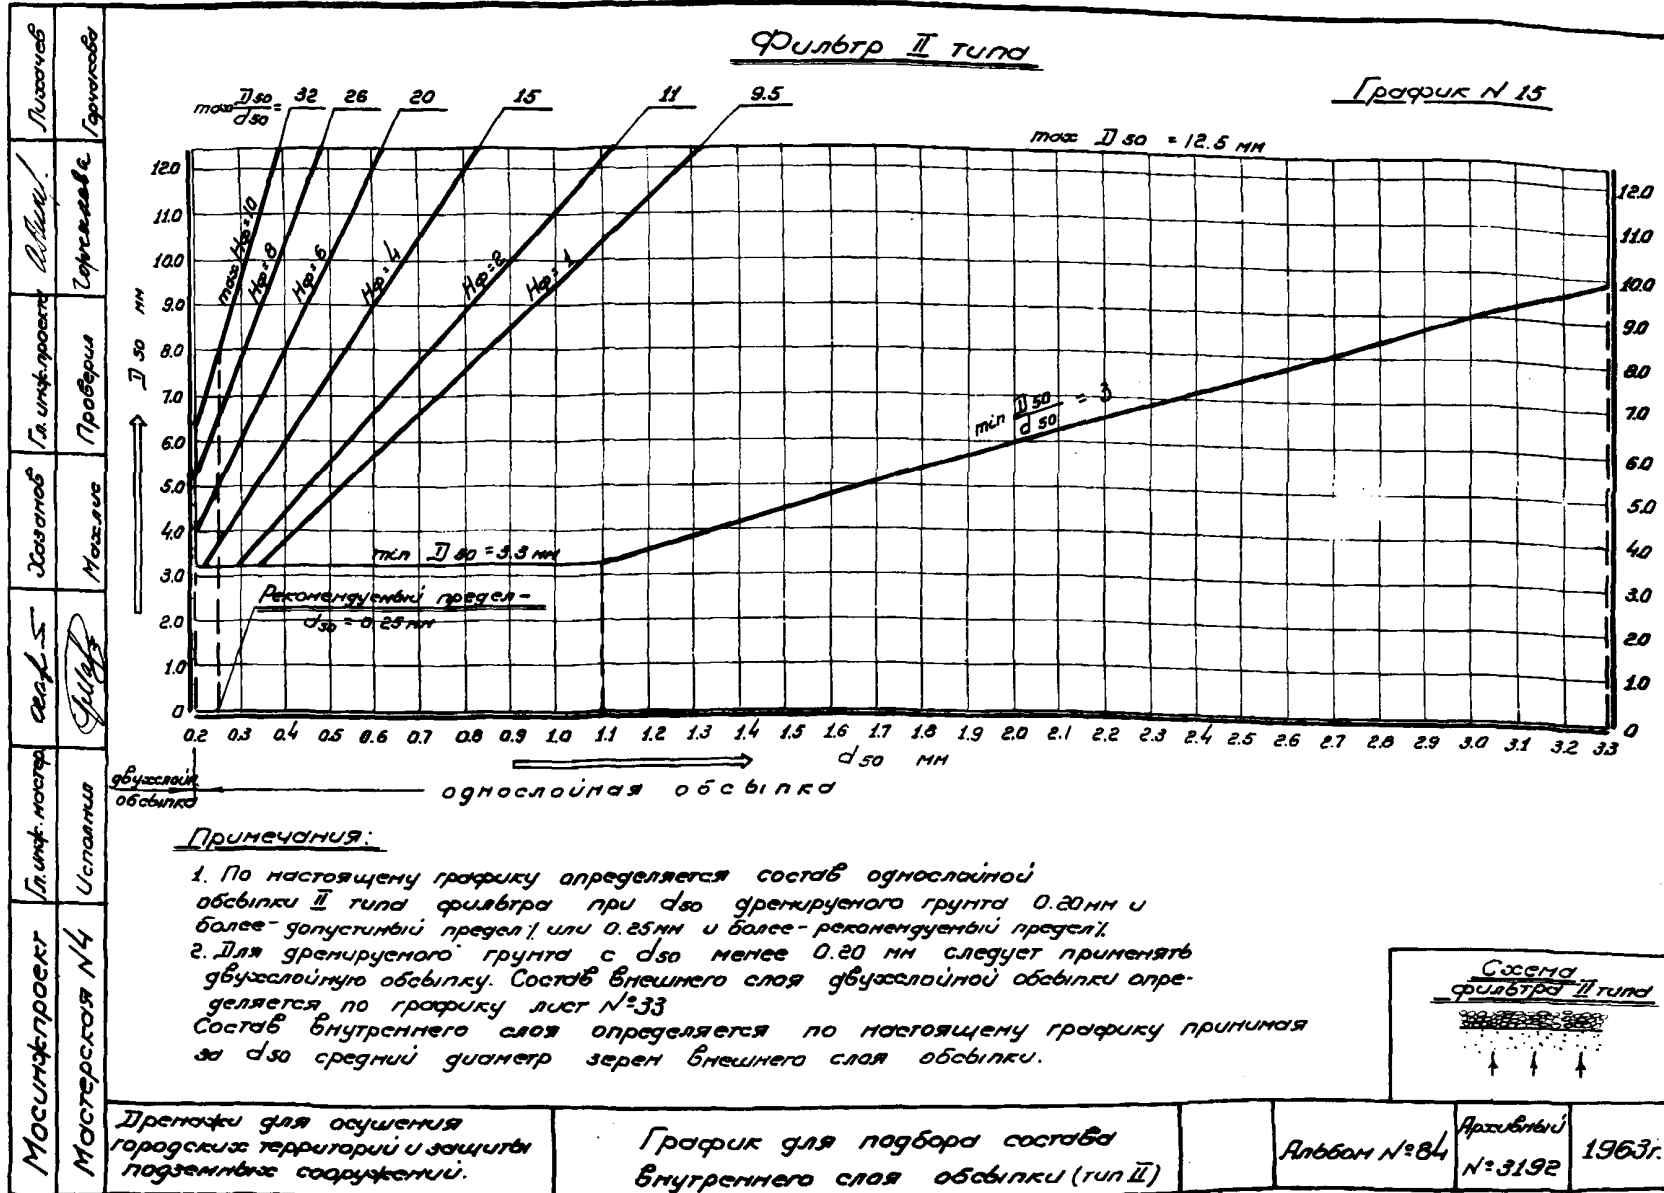 Фильтр II типа
График N 15
max D50/d50 = 32 26 20 15 11 9.5
max D50 = 12.5 мм
12.0
11.0
10.0
9.0
8.0
7.0
6.0
5.0
4.0
3.0
2.0
1.0
0
D50 мм
max Hф=10
Hф=8
Hф=6
Hф=4
Hф=2
Hф=1
min D50/d50 = 3
min D50 = 3.3 мм
Рекомендуемый предел-
d50 = 0.25мм
12.0
11.0
10.0
9.0
8.0
7.0
6.0
5.0
4.0
3.0
2.0
1.0
0
0.2 0.3 0.4 0.5 0.6 0.7 0.8 0.9 1.0 1.1 1.2 1.3 1.4 1.5 1.6 1.7 1.8 1.9 2.0 2.1 2.2 2.3 2.4 2.5 2.6 2.7 2.8 2.9 3.0 3.1 3.2 3.3
d50 мм
двухслойн.
обсыпка
однослойная обсыпка
Примечания:
1. По настоящему графику определяется состав однослойной
обсыпки II типа фильтра при d50 дренируемого грунта 0.20мм и
более-допустимый предел/ или 0.25мм и более-рекомендуемый предел/.
2. Для дренируемого грунта с d50 менее 0.20 мм следует применять
двухслойную обсыпку. Состав внешнего слоя двухслойной обсыпки опре-
деляется по графику лист №33
Состав внутреннего слоя определяется по настоящему графику принимая
за d50 средний диаметр зерен внешнего слоя обсыпки.
Схема
фильтра II типа
Дренажи для осушения
городских территорий и защиты
подземных сооружений.
График для подбора состава
внутреннего слоя обсыпки (тип II)
Альбом №84
Архивный
№3192
1963г.
Мосинжпроект
Мастерская N4
Гл.инж.мастер.
Исполнил
Хазанов
Махлис
Гл.инж.проекта
Проверил
Лихачев
Горчакова